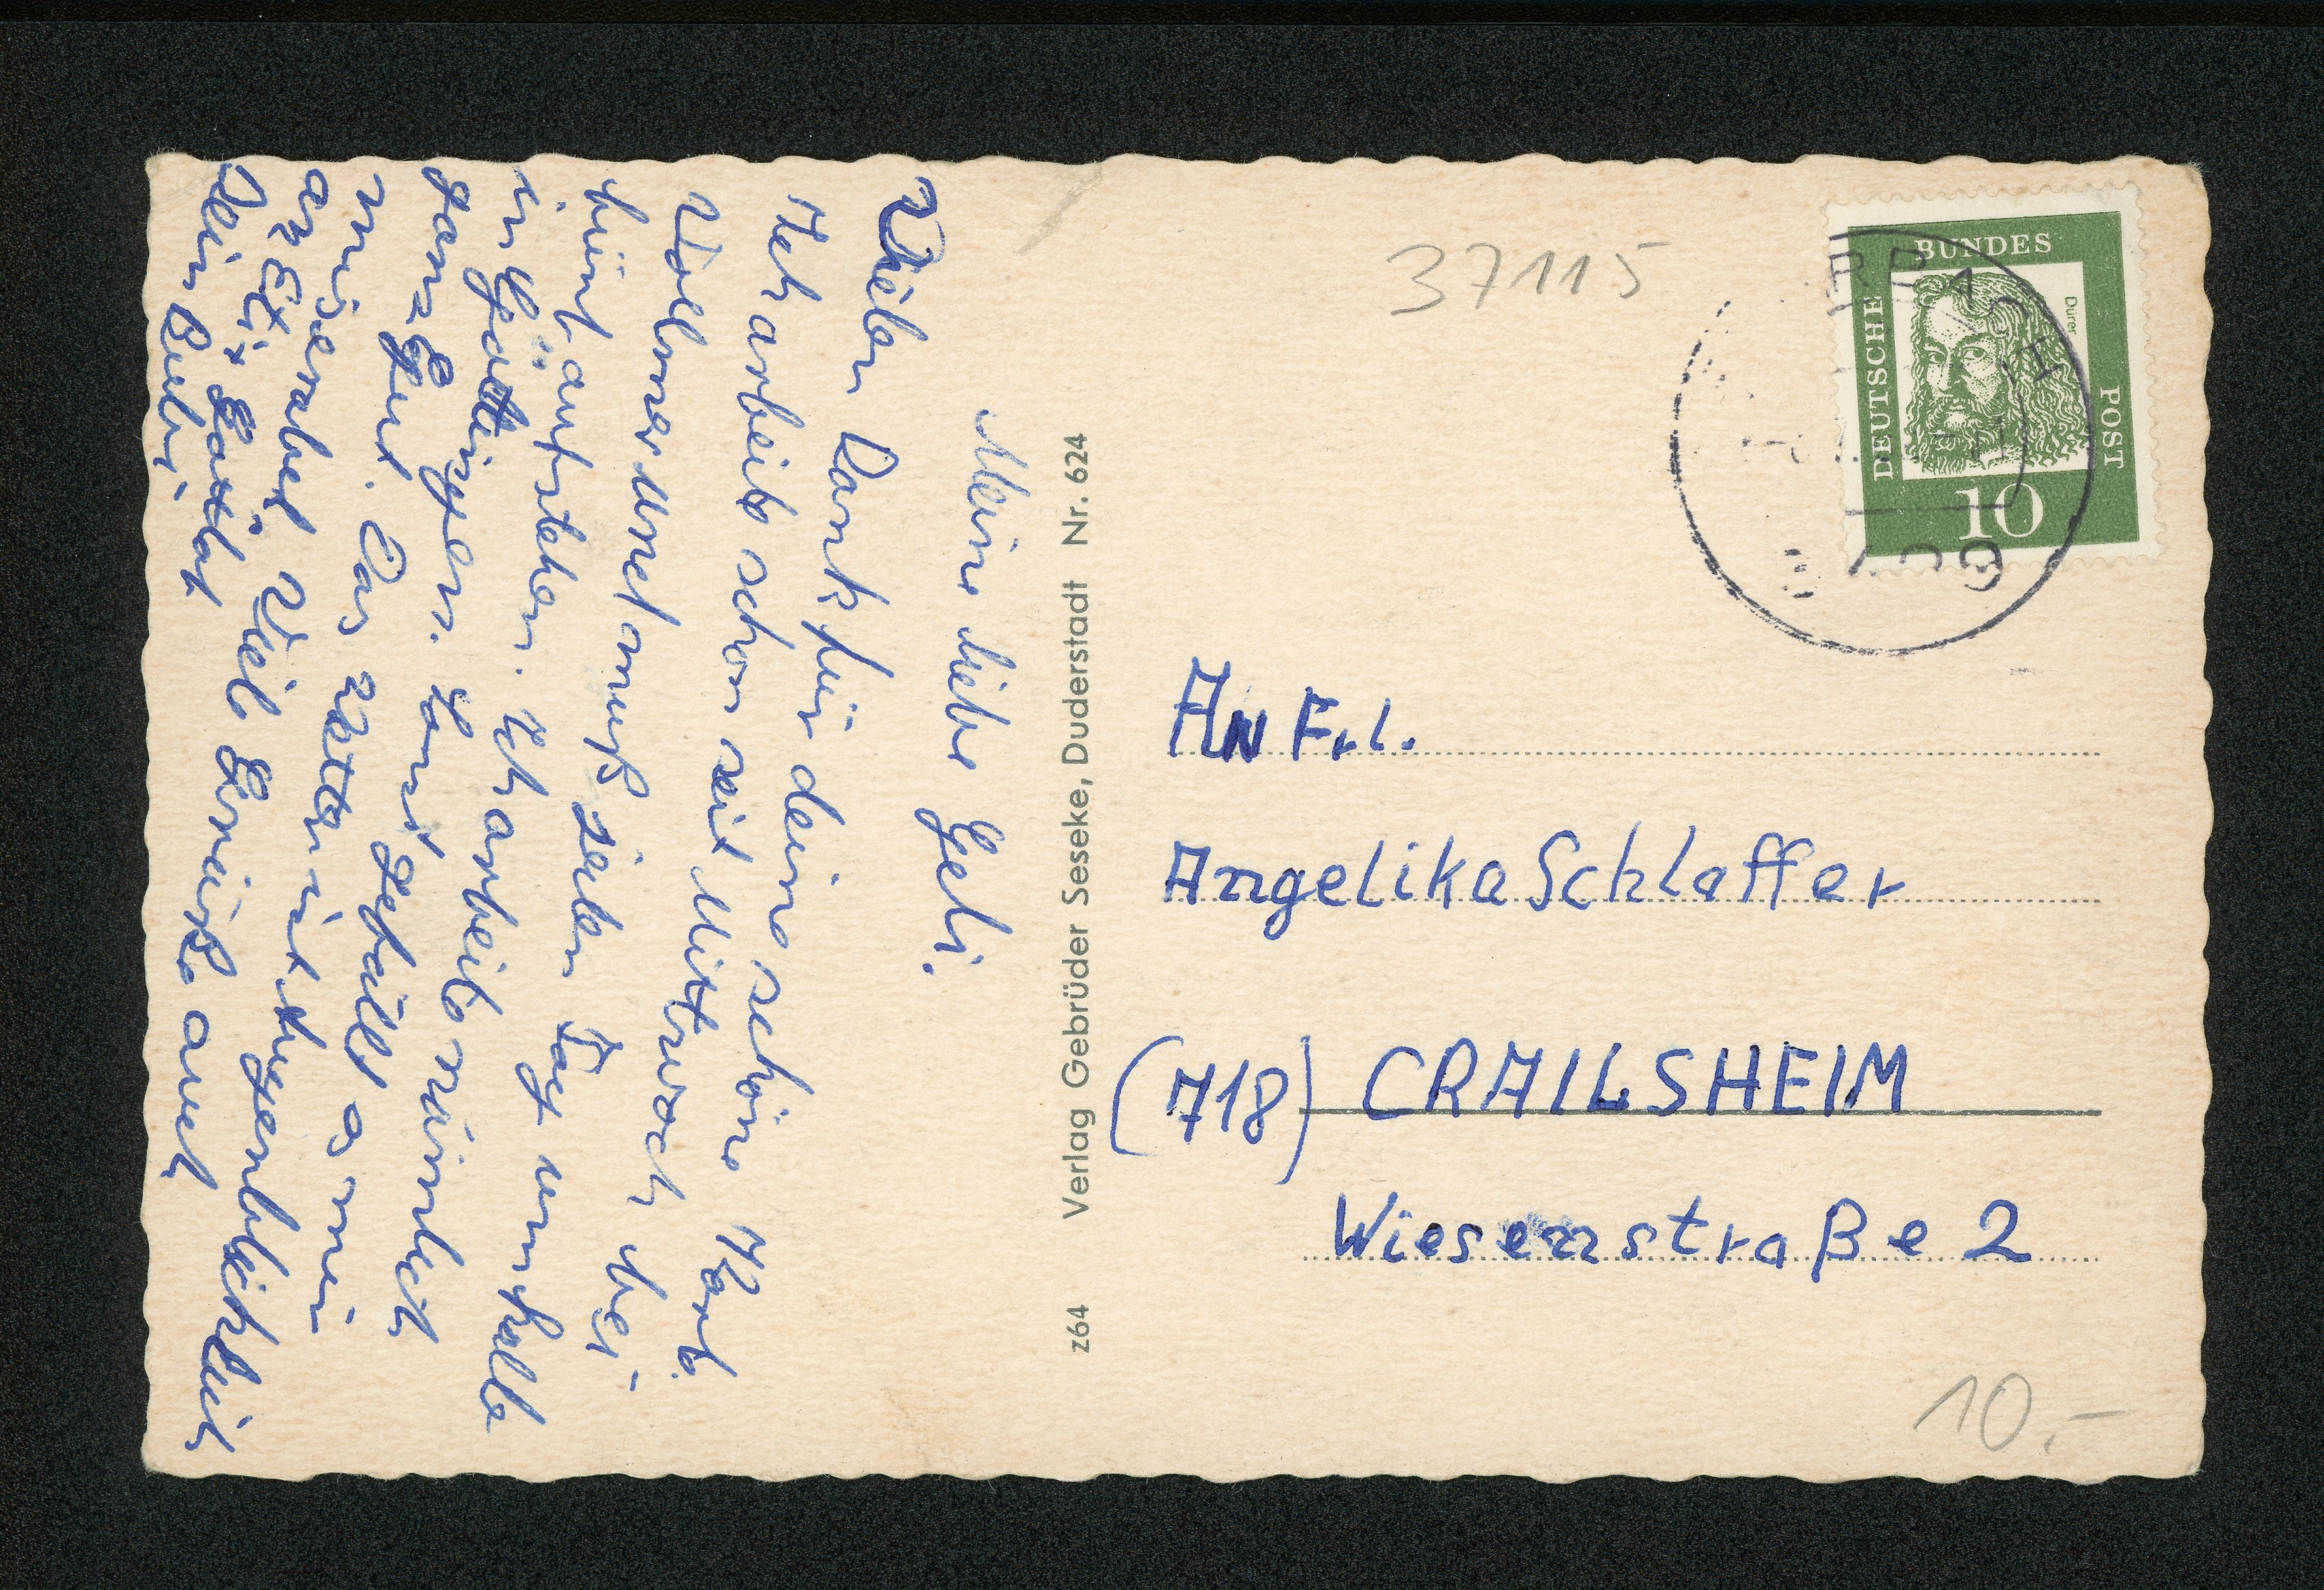 Meine liebe Geli.
Vielen Dank für deine schöne Karte.
Ich arbeite schon seit Mittwoch bei
Vollmer und muß jeden Tag um halb
fünf aufstehen. Ich arbeite nämlich
in Göttingen. Sonst gefällt es mir
ganz gut. Das Wetter ist augenblicklich
miserabel. Viele Grüße auch
an
Dein Bubi
z64 Verlag Gebrüder Seseke, Duderstadt Nr. 624
37115
DEUTSCHE BUNDES POST
Dürer
10
An Frl.
Angelika Schlaffer
(718) CRAILSHEIM
Wiesenstraße 2
10.-